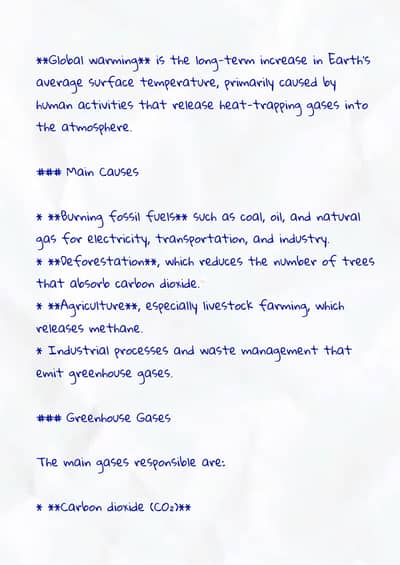 **Global warming** is the long-term increase in Earth's
average surface temperature, primarily caused by
human activities that release heat-trapping gases into
the atmosphere.
### Main Causes
* **Burning fossil fuels** such as coal, oil, and natural
gas for electricity, transportation, and industry.
* **Deforestation**, which reduces the number of trees
that absorb carbon dioxide.
* **Agriculture**, especially livestock farming, which
releases methane.
* Industrial processes and waste management that
emit greenhouse gases.
### Greenhouse Gases
The main gases responsible are:
* **Carbon dioxide (CO₂)**